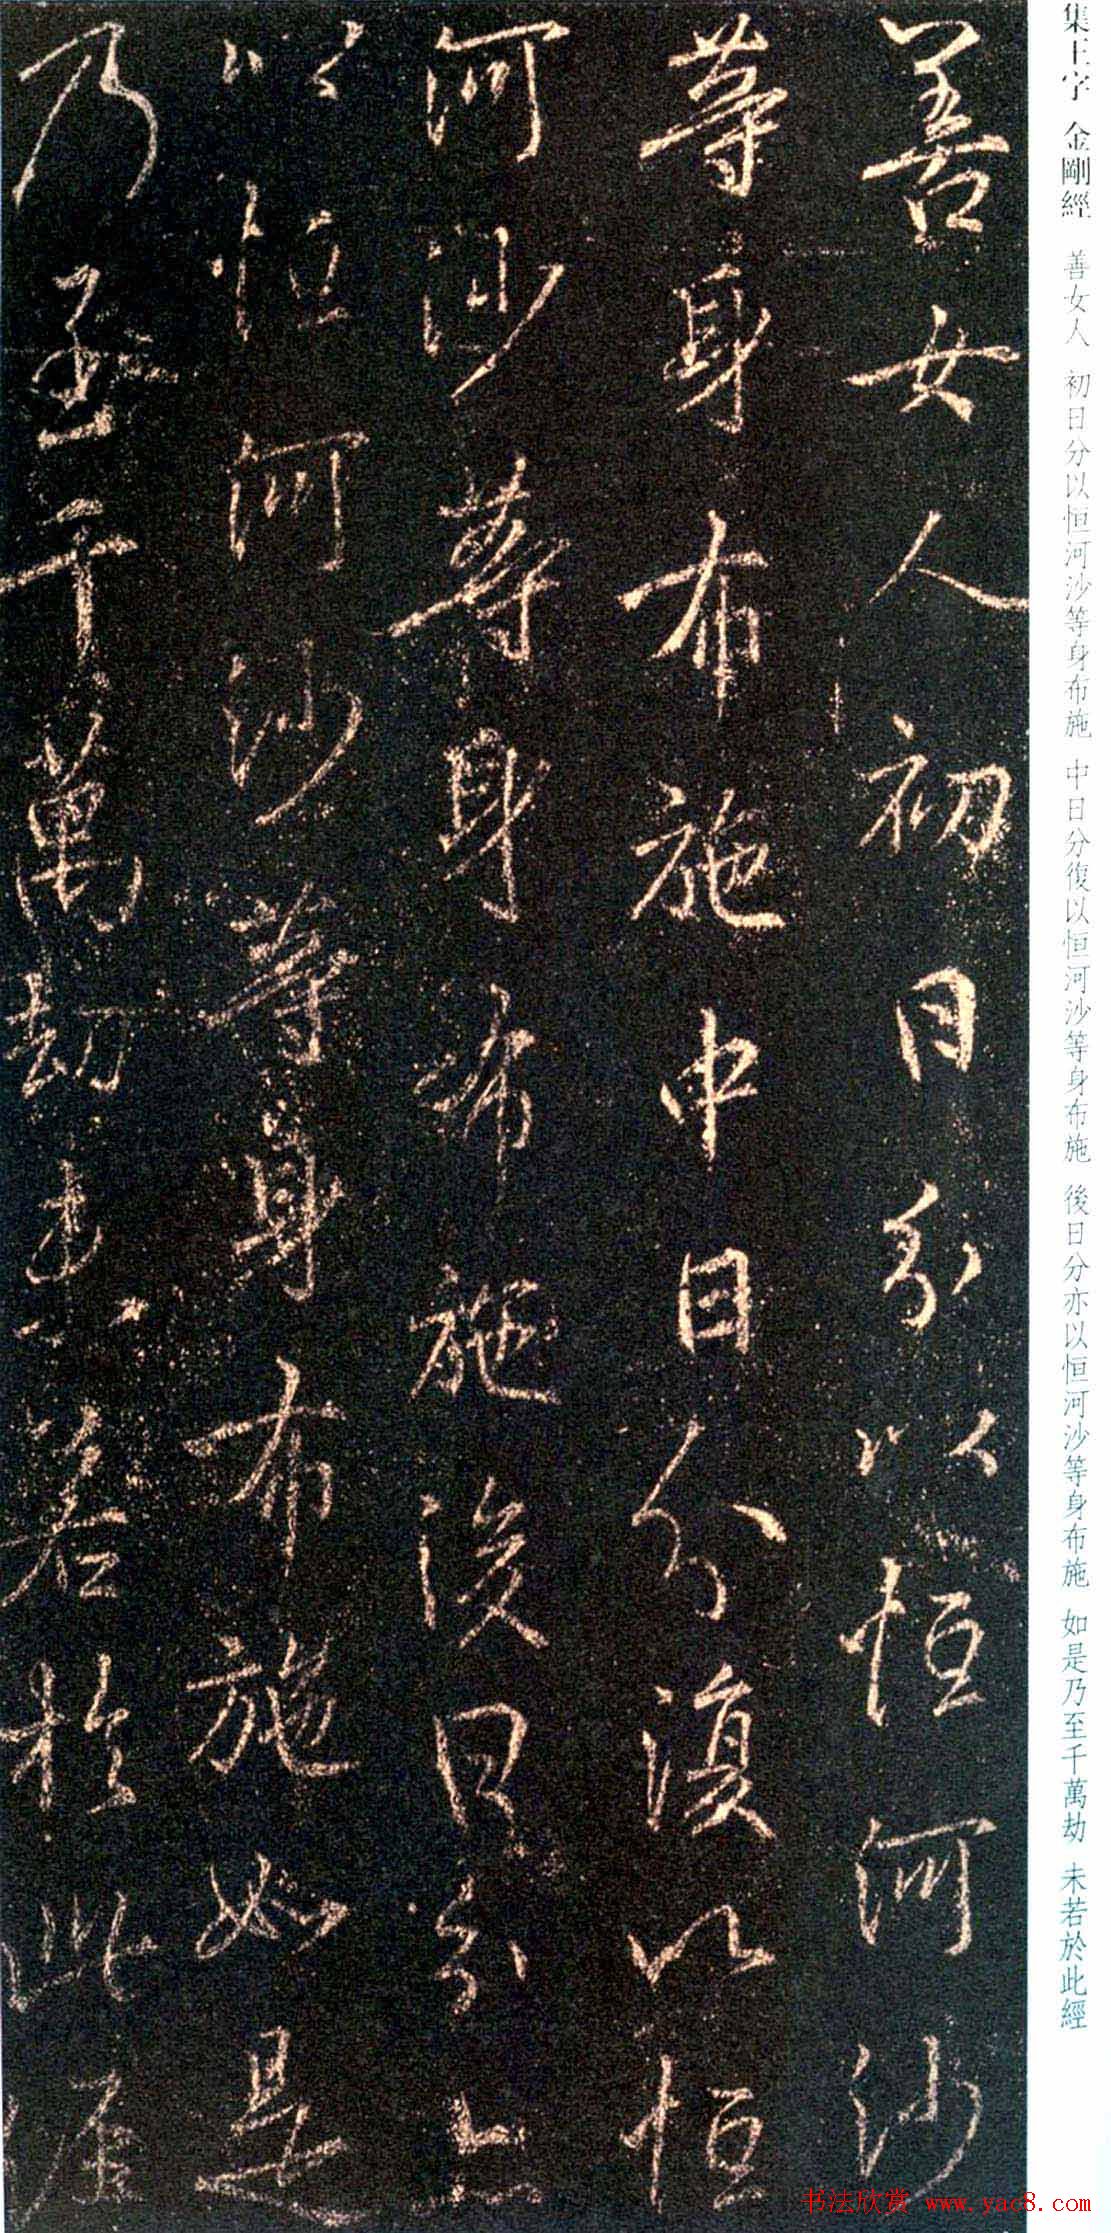 集王字 金剛經 善女人 初日分以恒河沙等身布施 中日分復以恒河沙等身布施 後日分亦以恒河沙等身布施 如是乃至千萬劫 未若於此經
善女人初日分以恒河沙
等身布施中日分復以恒
河沙等身布施後日分亦
以恒河沙等身布施如是
乃至千萬劫未若於此經
书法欣赏 www.yac8.com